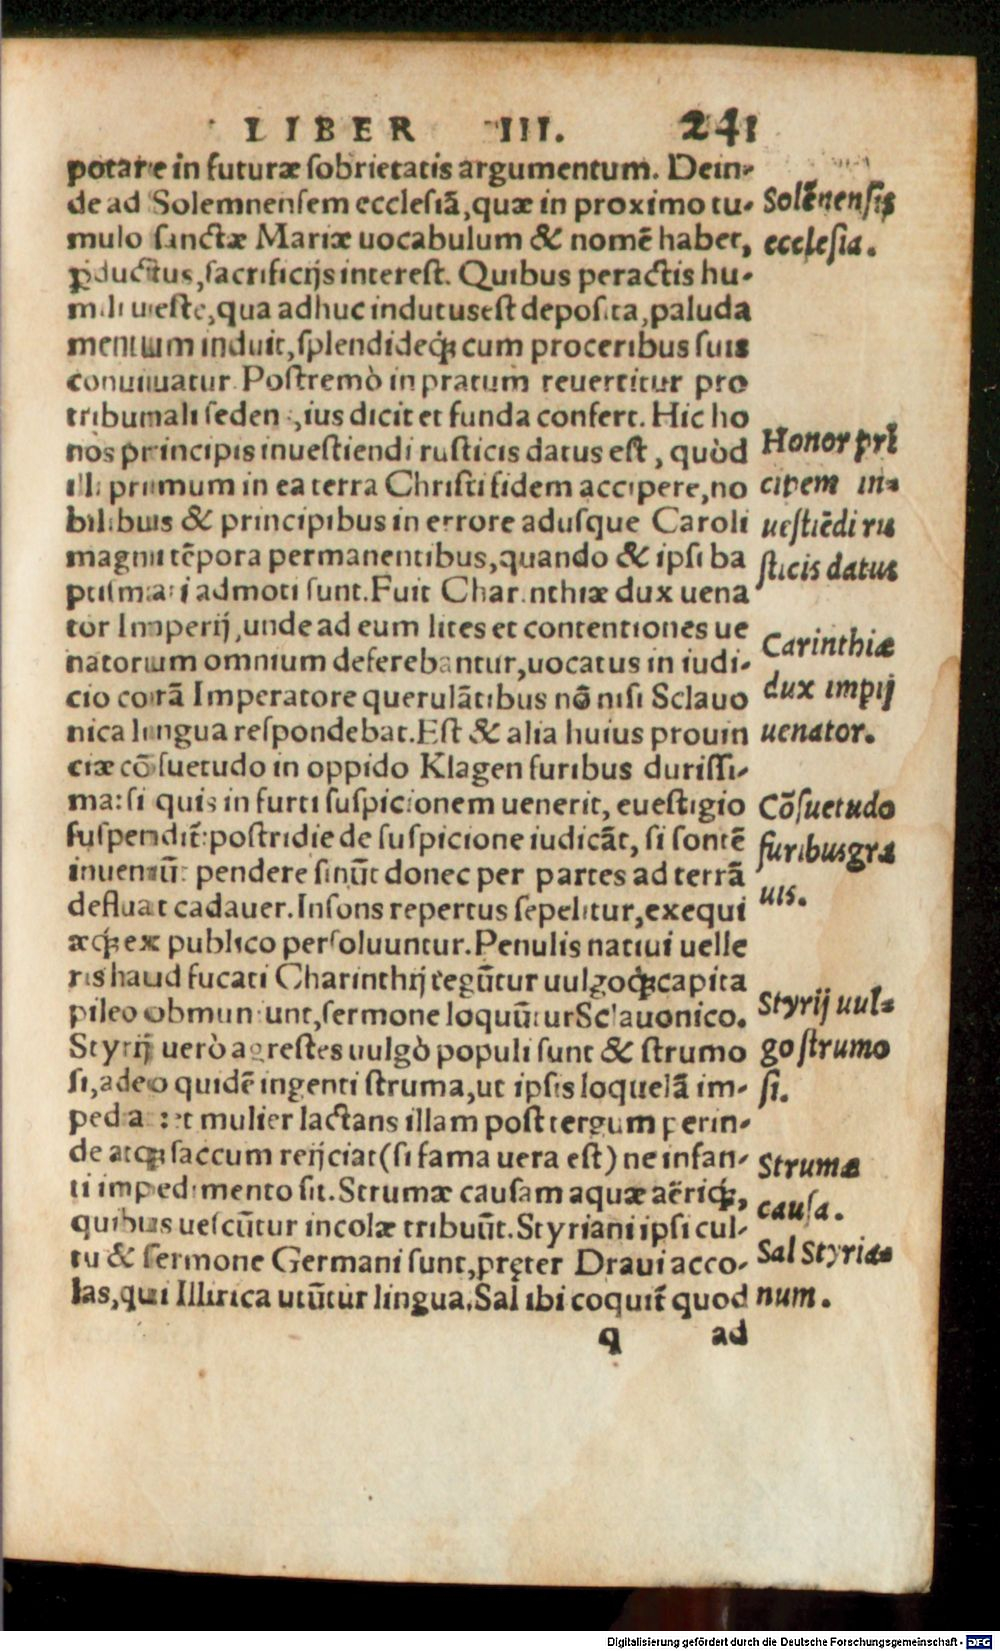 LIBER III. 241
potare in futuræ sobrietatis argumentum. Dein-
de ad Solemnensem ecclesiã, quæ in proximo tu-
mulo sanctæ Mariæ uocabulum & nomē habet,
ꝓductus, sacrificijs interest. Quibus peractis hu-
mili ueste, qua adhuc indutus est deposita, paluda
mentum induit, splendideq́ꝫ cum proceribus suis
conuiuatur. Postremò in pratum reuertitur pro
tribunali sedens, ius dicit et funda confert. Hic ho
nos principis inuestiendi rusticis datus est, quòd
illi primum in ea terra Christi fidem accipere, no
bilibus & principibus in errore adusque Caroli
magni tēpora permanentibus, quando & ipsi ba
ptismati admoti sunt. Fuit Charinthiæ dux uena
tor Imperij, unde ad eum lites et contentiones ue
natorum omnium deferebantur, uocatus in iudi-
cio corã Imperatore querulãtibus nõ nisi Sclauo
nica lingua respondebat. Est & alia huius prouin
ciæ cõsuetudo in oppido Klagen furibus durissi-
ma: si quis in furti suspicionem uenerit, euestigio
suspendit̃: postridie de suspicione iudicãt, si sontē
inueniũt: pendere sinũt donec per partes ad terrã
defluat cadauer. Insons repertus sepelitur, exequi
æq́ꝫ ex publico persoluuntur. Penulis natiui uelle
ris haud fucati Charinthij tegũtur uulgoq́ꝫ capita
pileo obmuniunt, sermone loquũtur Sclauonico.
Styrij uerò agrestes uulgò populi sunt & strumo
si, adeo quidē ingenti struma, ut ipsis loquelã im-
pediat: et mulier lactans illam post tergum perin-
de atqꝫ saccum reijciat (si fama uera est) ne infan-
ti impedimento sit. Strumæ causam aquæ aëriq́ꝫ,
quibus uescũtur incolæ tribuũt. Styriani ipsi cul-
tu & sermone Germani sunt, pręter Draui acco-
las, qui Illirica utũtur lingua. Sal ibi coquit̃ quod
q ad
Solēnensis
ecclesia.
Honor pri
cipem in-
uestiēdi ru
sticis datus
Carinthiæ
dux impij
uenator.
Cõsuetudo
furibus gra
uis.
Styrij uul-
go strumo
si.
Strumæ
causa.
Sal Styria-
num.
Digitalisierung gefördert durch die Deutsche Forschungsgemeinschaft - DFG